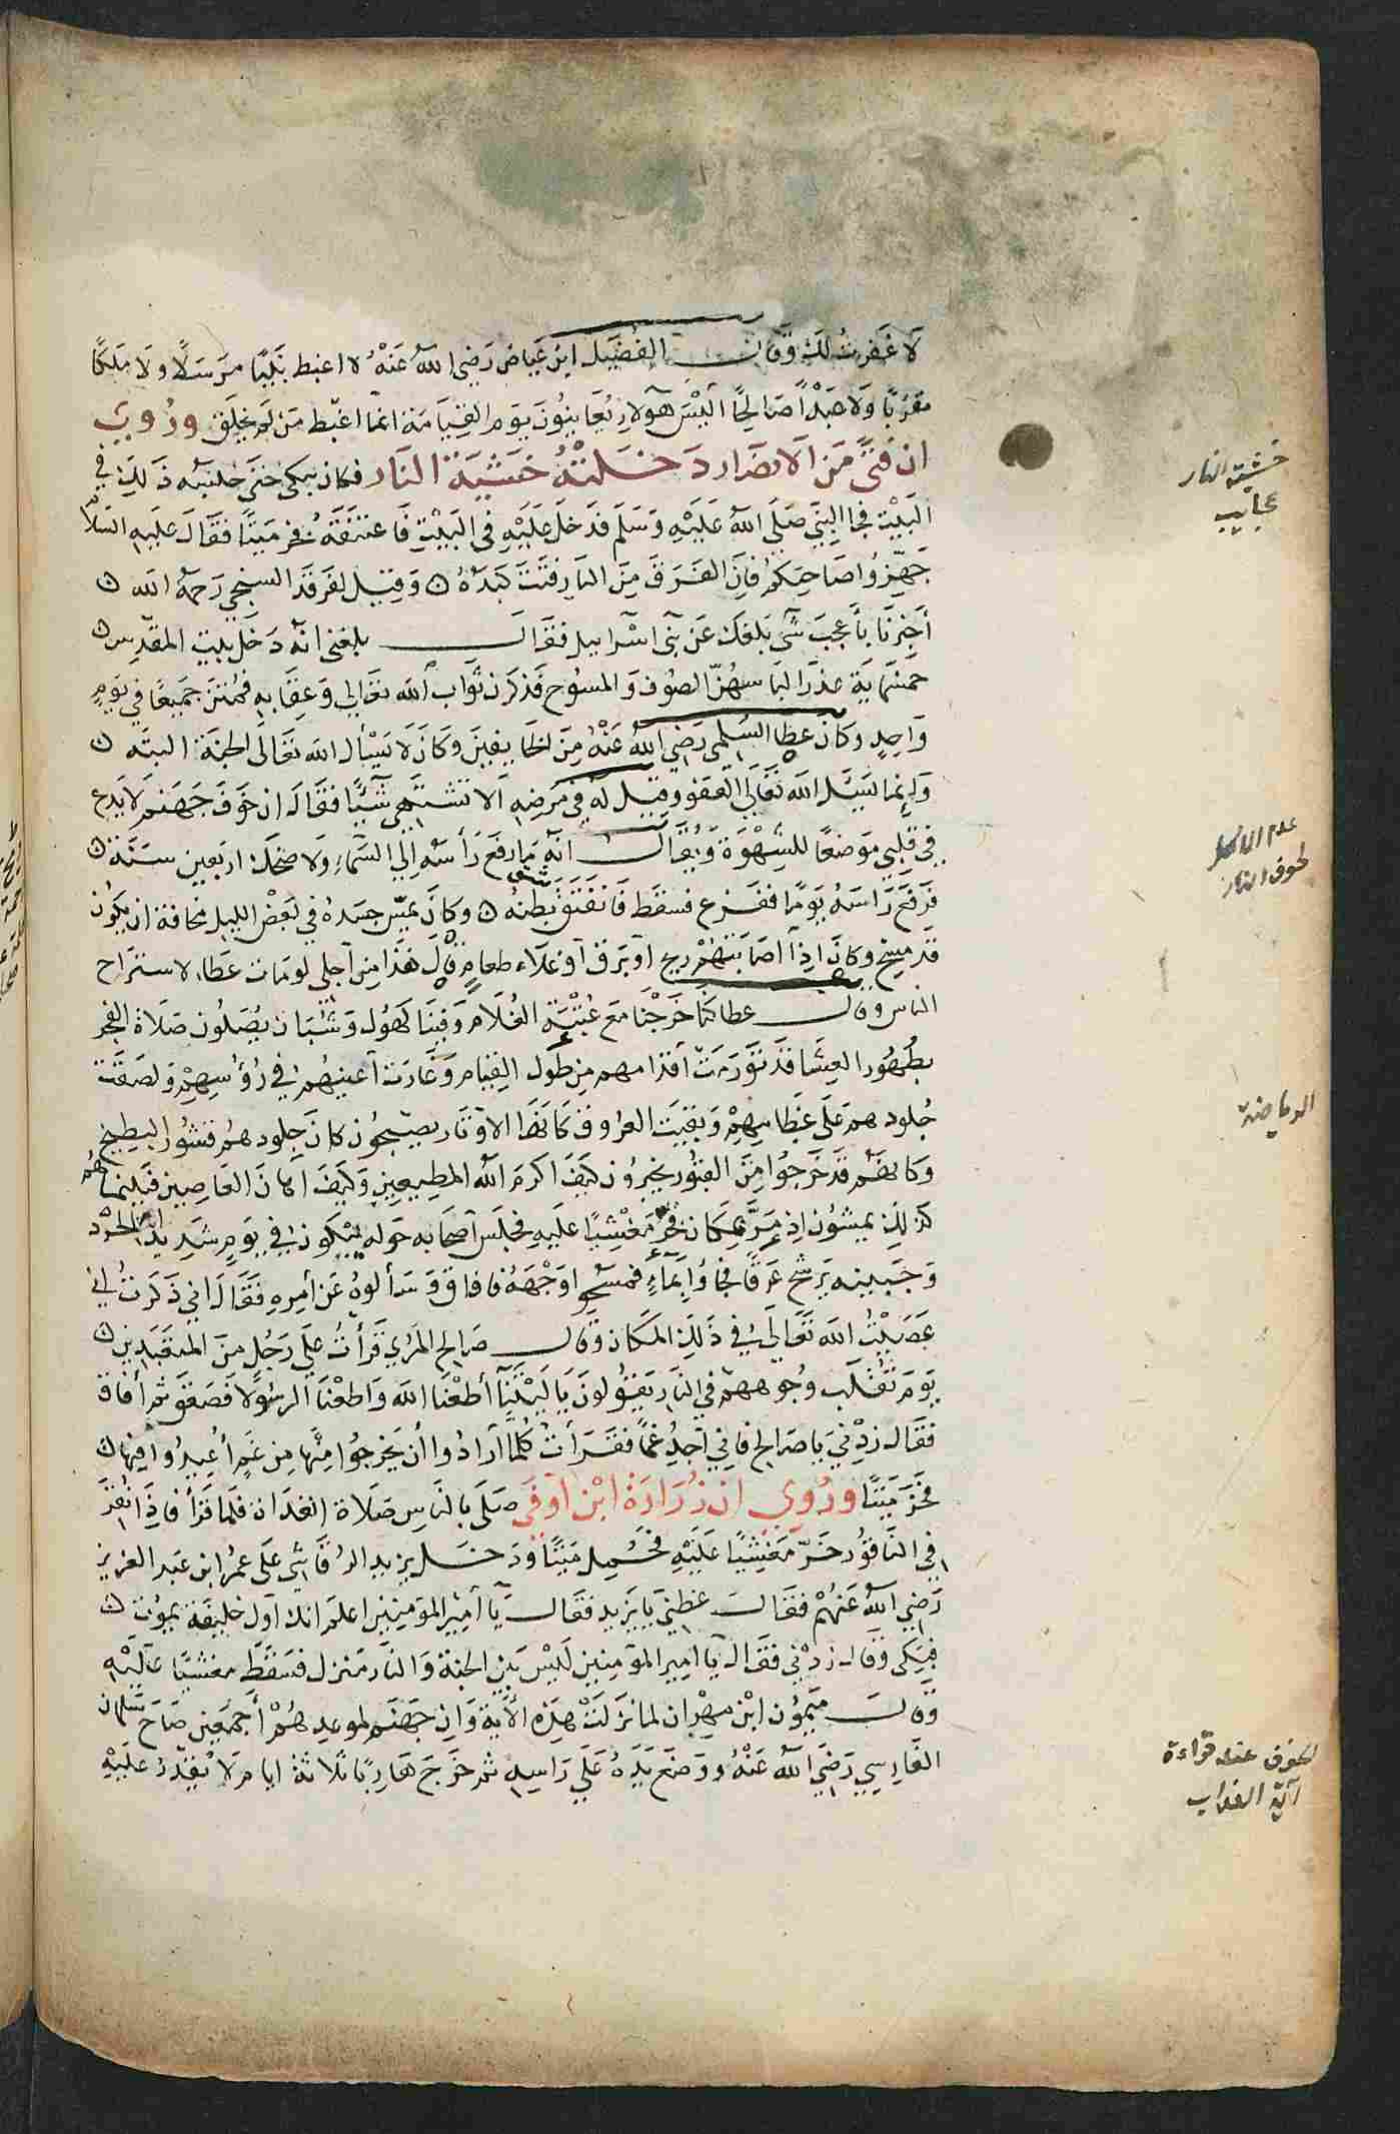 لاغفرت لك وقال الفضيل ابن عياض رضي الله عنه لا اغبط نبيا مرسلا ولا ملكا
مقربا ولا عبدا صالحا اليس هولاء يعاينون يوم القيامة انما اغبط من لم يخلق وروي
ان فتى من الانصار دخلته خشية النار فكان يبكي حتى حبسه ذلك في
البيت فجا النبي صلى الله عليه وسلم فدخل عليه في البيت فاعتنقه فخر ميتا فقال عليه السلام
جهزوا صاحبكم فان الفرق من النار فتت كبده ن وقيل لفرقد السبخي رحمه الله ن
أخبرنا بأعجب شي بلغك عن بني اسرائيل فقال بلغني انه دخل بيت المقدس ن
خمسماية عذرا لباسهن الصوف والمسوح فذكرن ثواب الله تعالي وعقابه فمتن جميعا في يوم
واحد وكان عطا السلمي رضي الله عنه من الخايفين وكان لا يسأل الله تعالى الجنة البته ن
وانما يسئل الله تعالي العفو وقيل له في مرضه ألا تشتهي شيئا فقال ان خوف جهنم لا يدع
في قلبي موضعا للشهوة ويقال انه ما رفع رأسه الي السماء ولا ضحك اربعين سنة ن
فرفع راسه يوما ففزع فسقط فانفتق بطنه ن وكان يمس جسده في بعض الليل مخافة ان يكون
قد مسخ وكان اذا اصابتهم ريح او برق او غلاء طعام قال هذا من أجلي لو مات عطاء لاستراح
الناس وقال عطا كنا خرجنا مع عتبة الغلام وفينا كهول وشبان يصلون صلاة الفجر
بطهور العشا قد تورمت أقدامهم من طول القيام وغارت أعينهم في رؤسهم ولصقت
جلودهم على عظامهم وبقيت العروق كانها الاوتار يصبحون كان جلودهم قشور البطيخ
وكانهم قد خرجوا من القبور يخبرون كيف اكرم الله المطيعين وكيف اهان العاصين فبينما هم
كذلك يمشون اذ مر بمكان فخر مغشيا عليه فجلس أصحابه حوله يبكون في يوم شديد البرد
وجبينه يرشح عرقا فجاؤا بماء فمسحوا وجهه فافاق وسألوه عن أمره فقال اني ذكرت اني
عصيت الله تعالى في ذلك المكان وقال صالح المري قرأت على رجل من المتعبدين ن
يوم تقلب وجوههم في النار يقولون يا ليتنا أطعنا الله واطعنا الرسولا فصعق ثم أفاق
فقال زدني يا صالح فاني أجد غما فقرأت كلما أرادوا أن يخرجوا منها من غم أعيدوا فيها ن
فخر ميتا وروي ان زرارة ابن أوفى صلى بالناس صلاة الغداة فلما قرأ فاذا نقر
في الناقور خر مغشيا عليه فحمل ميتا ودخل يزيد الرقاشي على عمر ابن عبد العزيز
رضي الله عنهم فقال عظني يا يزيد فقال يا أمير المومنين اعلم انك أول خليفة يموت ن
فبكى وقال زدني فقال يا امير المومنين ليس بين الجنة والنار منزل فسقط مغشيا عليه
وقال ميمون ابن مهران لما نزلت هذه الاية وان جهنم لموعدهم أجمعين صاح سلمان
الفارسي رضي الله عنه ووضع يده على راسه ثم خرج هاربا ثلاثة ايام لا يقدر عليه
خشية النار
عجايب
عدم الاكل
لخوف النار
الرياضة
لخوف عند قراءة
آية العذاب